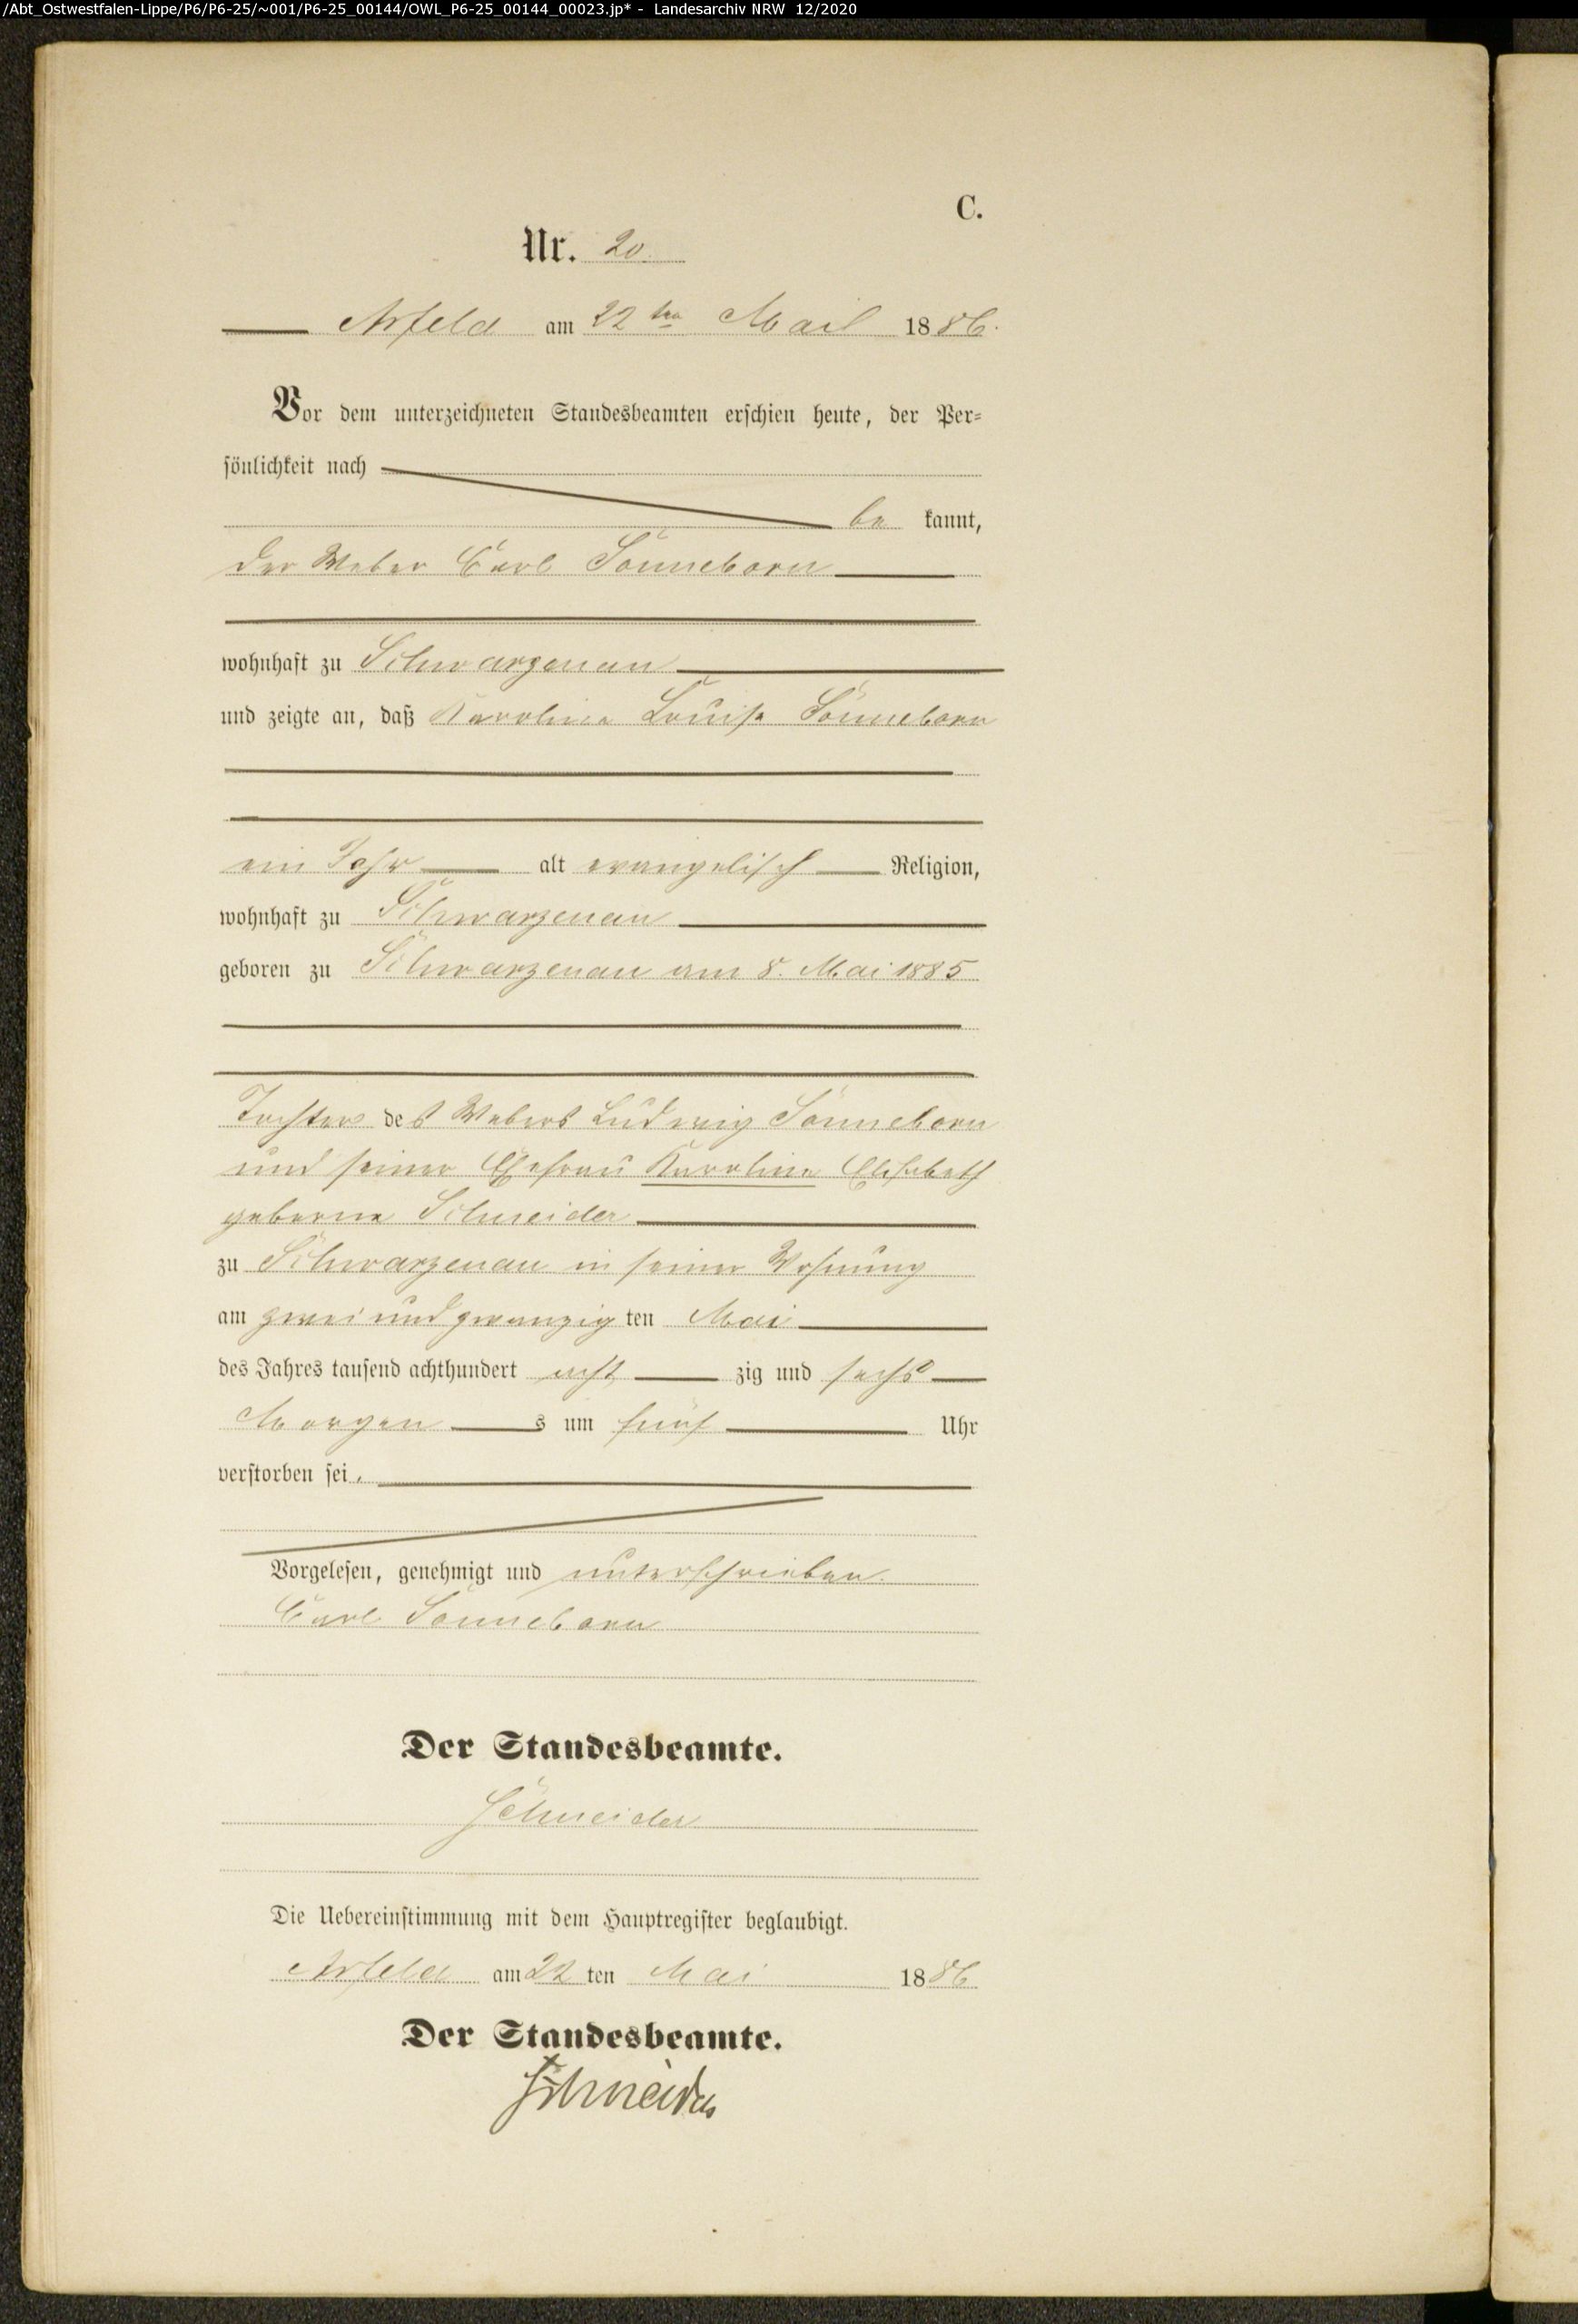 /Abt_Ostwestfalen-Lippe/P6/P6-25/~001/P6-25_00144/OWL_P6-25_00144_00023.jp* - Landesarchiv NRW 12/2020
C.
Nr. 20.
Arfeld am 22ten Mail 1886.
Vor dem unterzeichneten Standesbeamten erschien heute, der Per-
sönlichkeit nach
be kannt,
der Weber Carl Sonneborn
wohnhaft zu Schwarzenau
und zeigte an, daß Karoline Louise Sonneborn
ein Jahr alt evangelisch Religion,
wohnhaft zu Schwarzenau
geboren zu Schwarzenau am 8. Mai 1885
Tochter des Webers Ludwig Sonneborn
und seiner Ehefrau Karoline Elisabeth
geborne Schneider
zu Schwarzenau in seiner Wohnung
am zwei und zwanzig ten Mai
des Jahres tausend achthundert acht zig und sechs
Morgen s um fünf Uhr
verstorben sei.
Vorgelesen, genehmigt und unterschrieben.
Carl Sonneborn
Der Standesbeamte.
Schneider
Die Uebereinstimmung mit dem Hauptregister beglaubigt.
Arfeld am 22 ten Mai 1886
Der Standesbeamte.
Schneider